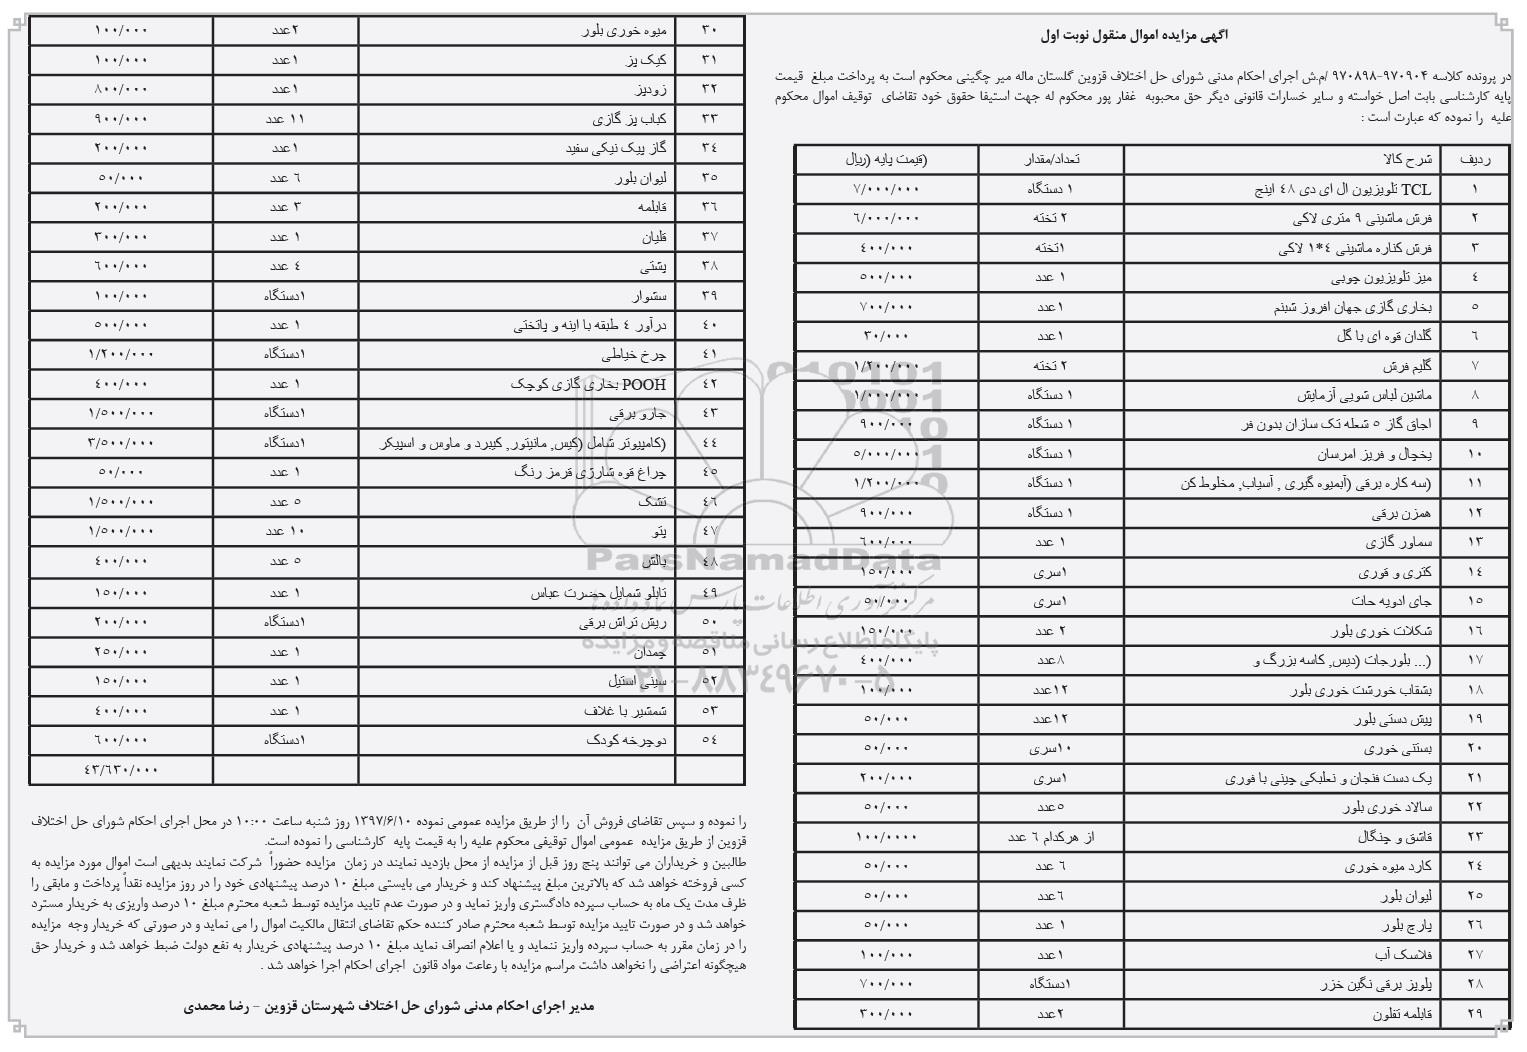 اگهی مزایده اموال منقول نوبت اول
در پرونده کلاسه ۹۷۰۹۰۴-۹۷۰۸۹۸ /م.ش اجرای احکام مدنی شورای حل اختلاف قزوین گلستان ماله میر چگینی محکوم است به پرداخت مبلغ قیمت
پایه کارشناسی بابت اصل خواسته و سایر خسارات قانونی دیگر حق محبوبه غفار پور محکوم له جهت استیفا حقوق خود تقاضای توقیف اموال محکوم
علیه را نموده که عبارت است :
ردیف شرح کالا تعداد/مقدار (قیمت پایه (ریال
۱ TCL تلویزیون ال ای دی ۴۸ اینج ۱ دستگاه ۷/۰۰۰/۰۰۰
۲ فرش ماشینی ۹ متری لاکی ۲ تخته ۶/۰۰۰/۰۰۰
۳ فرش کناره ماشینی ۴*۱ لاکی ۱تخته ۴۰۰/۰۰۰
۴ میز تلویزیون چوبی ۱ عدد ۵۰۰/۰۰۰
۵ بخاری گازی جهان افروز شبنم ۱عدد ۷۰۰/۰۰۰
۶ گلدان قوه ای با گل ۱عدد ۳۰/۰۰۰
۷ گلیم فرش ۲ تخته ۱/۲۰۰/۰۰۰
۸ ماشین لباس شویی آزمایش ۱ دستگاه ۱/۰۰۰/۰۰۰
۹ اجاق گاز ۵ شعله تک سازان بدون فر ۱ دستگاه ۹۰۰/۰۰۰
۱۰ یخچال و فریز امرسان ۱ دستگاه ۵/۰۰۰/۰۰۰
۱۱ (سه کاره برقی (آبمیوه گیری , آسیاب, مخلوط کن ۱ دستگاه ۱/۲۰۰/۰۰۰
۱۲ همزن برقی ۱ دستگاه ۹۰۰/۰۰۰
۱۳ سماور گازی ۱ عدد ۶۰۰/۰۰۰
۱۴ کتری و قوری ۱سری ۱۵۰/۰۰۰
۱۵ جای ادویه حات ۱سری ۵۰/۰۰۰
۱۶ شکلات خوری بلور ۲ عدد ۱۵۰/۰۰۰
۱۷ (... بلورجات (دیس, کاسه بزرگ و ۸عدد ۴۰۰/۰۰۰
۱۸ بشقاب خورشت خوری بلور ۱۲عدد ۱۰۰/۰۰۰
۱۹ پیش دستی بلور ۱۲عدد ۵۰/۰۰۰
۲۰ بستنی خوری ۱۰سری ۵۰/۰۰۰
۲۱ یک دست فنجان و نعلبکی چینی با قوری ۱سری ۲۰۰/۰۰۰
۲۲ سالاد خوری بلور ۵عدد ۵۰/۰۰۰
۲۳ قاشق و چنگال از هرکدام ۶ عدد ۱۰۰/۰۰۰۰
۲۴ کارد میوه خوری ۶ عدد ۵۰/۰۰۰
۲۵ لیوان بلور ۶عدد ۵۰/۰۰۰
۲۶ پارچ بلور ۱ عدد ۵۰/۰۰۰
۲۷ فلاسک آب ۱عدد ۱۰۰/۰۰۰
۲۸ پلوپز برقی نگین خزر ۱دستگاه ۷۰۰/۰۰۰
۲۹ قابلمه تفلون ۲عدد ۳۰۰/۰۰۰
۳۰ میوه خوری بلور ۲عدد ۱۰۰/۰۰۰
۳۱ کیک پز ۱عدد ۱۰۰/۰۰۰
۳۲ زودپز ۱عدد ۸۰۰/۰۰۰
۳۳ کباب پز گازی ۱۱ عدد ۹۰۰/۰۰۰
۳۴ گاز پیک نیکی سفید ۱عدد ۲۰۰/۰۰۰
۳۵ لیوان بلور ۶ عدد ۵۰/۰۰۰
۳۶ قابلمه ۳ عدد ۲۰۰/۰۰۰
۳۷ قلیان ۱ عدد ۳۰۰/۰۰۰
۳۸ پشتی ۴ عدد ۶۰۰/۰۰۰
۳۹ سشوار ۱دستگاه ۱۰۰/۰۰۰
۴۰ درآور ۴ طبقه با اینه و پاتختی ۱ عدد ۵۰۰/۰۰۰
۴۱ چرخ خیاطی ۱دستگاه ۱/۲۰۰/۰۰۰
۴۲ POOH بخاری گازی کوچک ۱ عدد ۴۰۰/۰۰۰
۴۳ جارو برقی ۱دستگاه ۱/۵۰۰/۰۰۰
۴۴ (کامپیوتر شامل (کیس, مانیتور, کیبرد و ماوس و اسپیکر ۱دستگاه ۳/۵۰۰/۰۰۰
۴۵ چراغ قوه شارژی قرمز رنگ ۱ عدد ۵۰/۰۰۰
۴۶ تشک ۵ عدد ۱/۵۰۰/۰۰۰
۴۷ پتو ۱۰ عدد ۱/۵۰۰/۰۰۰
۴۸ بالش ۵ عدد ۴۰۰/۰۰۰
۴۹ تابلو شمایل حضرت عباس ۱ عدد ۱۵۰/۰۰۰
۵۰ ریش تراش برقی ۱دستگاه ۲۰۰/۰۰۰
۵۱ چمدان ۱ عدد ۲۵۰/۰۰۰
۵۲ سینی استیل ۱ عدد ۱۵۰/۰۰۰
۵۳ شمشیر با غلاف ۱ عدد ۴۰۰/۰۰۰
۵۴ دوچرخه کودک ۱دستگاه ۶۰۰/۰۰۰
۴۳/۶۳۰/۰۰۰
را نموده و سپس تقاضای فروش آن را از طریق مزایده عمومی نموده ۱۳۹۷/۶/۱۰ روز شنبه ساعت ۱۰:۰۰ در محل اجرای احکام شورای حل اختلاف
قزوین از طریق مزایده عمومی اموال توقیفی محکوم علیه را به قیمت پایه کارشناسی را نموده است.
طالبین و خریداران می توانند پنج روز قبل از مزایده از محل بازدید نمایند در زمان مزایده حضوراً شرکت نمایند بدیهی است اموال مورد مزایده به
کسی فروخته خواهد شد که بالاترین مبلغ پیشنهاد کند و خریدار می بایستی مبلغ ۱۰ درصد پیشنهادی خود را در روز مزایده نقداً پرداخت و مابقی را
ظرف مدت یک ماه به حساب سپرده دادگستری واریز نماید و در صورت عدم تایید مزایده توسط شعبه محترم مبلغ ۱۰ درصد واریزی به خریدار مسترد
خواهد شد و در صورت تایید مزایده توسط شعبه محترم صادر کننده حکم تقاضای انتقال مالکیت اموال را می نماید و در صورتی که خریدار وجه مزایده
را در زمان مقرر به حساب سپرده واریز ننماید و یا اعلام انصراف نماید مبلغ ۱۰ درصد پیشنهادی خریدار به نفع دولت ضبط خواهد شد و خریدار حق
هیچگونه اعتراضی را نخواهد داشت مراسم مزایده با رعاعت مواد قانون اجرای احکام اجرا خواهد شد .
مدیر اجرای احکام مدنی شورای حل اختلاف شهرستان قزوین – رضا محمدی
ParsNamadData
مرکز فرآوری اطلاعات پارس نماد داده ها
پایگاه اطلاع رسانی مناقصه و مزایده
۰۲۱-۸۸۳۴۹۶۷۰-۵